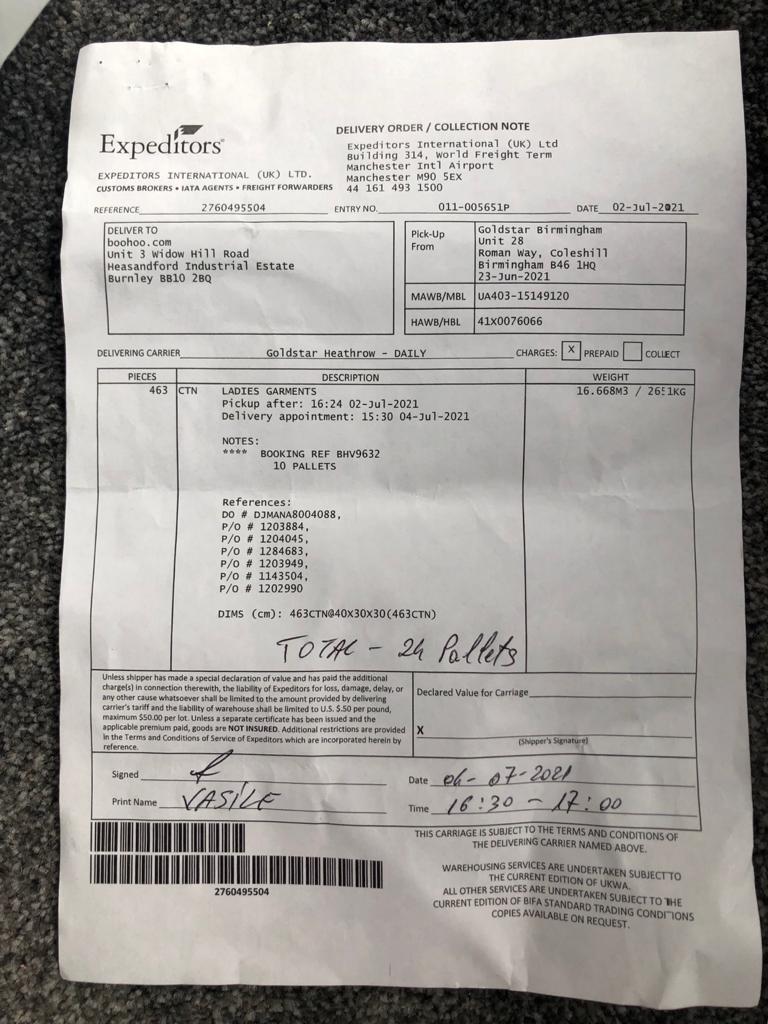 DELIVERY ORDER / COLLECTION NOTE
Expeditors
Expeditors International (UK) Ltd
Building 314, World Freight Term
Manchester Intl Airport
Manchester M90 5EX
44 161 493 1500
EXPEDITORS INTERNATIONAL (UK) LTD.
CUSTOMS BROKERS • IATA AGENTS • FREIGHT FORWARDERS
REFERENCE 2760495504 ENTRY NO. 011-005651P DATE 02-Jul-2021
DELIVER TO
boohoo.com
Unit 3 Widow Hill Road
Heasandford Industrial Estate
Burnley BB10 2BQ
Pick-Up From
Goldstar Birmingham
Unit 28
Roman Way, Coleshill
Birmingham B46 1HQ
23-Jun-2021
MAWB/MBL UA403-15149120
HAWB/HBL 41X0076066
DELIVERING CARRIER Goldstar Heathrow - DAILY CHARGES: X PREPAID COLLECT
PIECES DESCRIPTION WEIGHT
463 CTN LADIES GARMENTS 16.668M3 / 2651KG
Pickup after: 16:24 02-Jul-2021
Delivery appointment: 15:30 04-Jul-2021
NOTES:
**** BOOKING REF BHV9632
10 PALLETS
References:
DO # DJMANA8004088,
P/O # 1203884,
P/O # 1204045,
P/O # 1284683,
P/O # 1203949,
P/O # 1143504,
P/O # 1202990
DIMS (cm): 463CTN@40X30X30(463CTN)
TOTAL - 24 Pallets
Unless shipper has made a special declaration of value and has paid the additional
charge(s) in connection therewith, the liability of Expeditors for loss, damage, delay, or
any other cause whatsoever shall be limited to the amount provided by delivering
carrier's tariff and the liability of warehouse shall be limited to U.S. $.50 per pound,
maximum $50.00 per lot. Unless a separate certificate has been issued and the
applicable premium paid, goods are NOT INSURED. Additional restrictions are provided
in the Terms and Conditions of Service of Expeditors which are incorporated herein by
reference.
Declared Value for Carriage
X
(Shipper's Signature)
Signed
Date 04-07-2021
Print Name VASILE
Time 16:30 - 17:00
THIS CARRIAGE IS SUBJECT TO THE TERMS AND CONDITIONS OF
THE DELIVERING CARRIER NAMED ABOVE.
WAREHOUSING SERVICES ARE UNDERTAKEN SUBJECT TO
THE CURRENT EDITION OF UKWA.
ALL OTHER SERVICES ARE UNDERTAKEN SUBJECT TO THE
CURRENT EDITION OF BIFA STANDARD TRADING CONDITIONS
COPIES AVAILABLE ON REQUEST.
2760495504